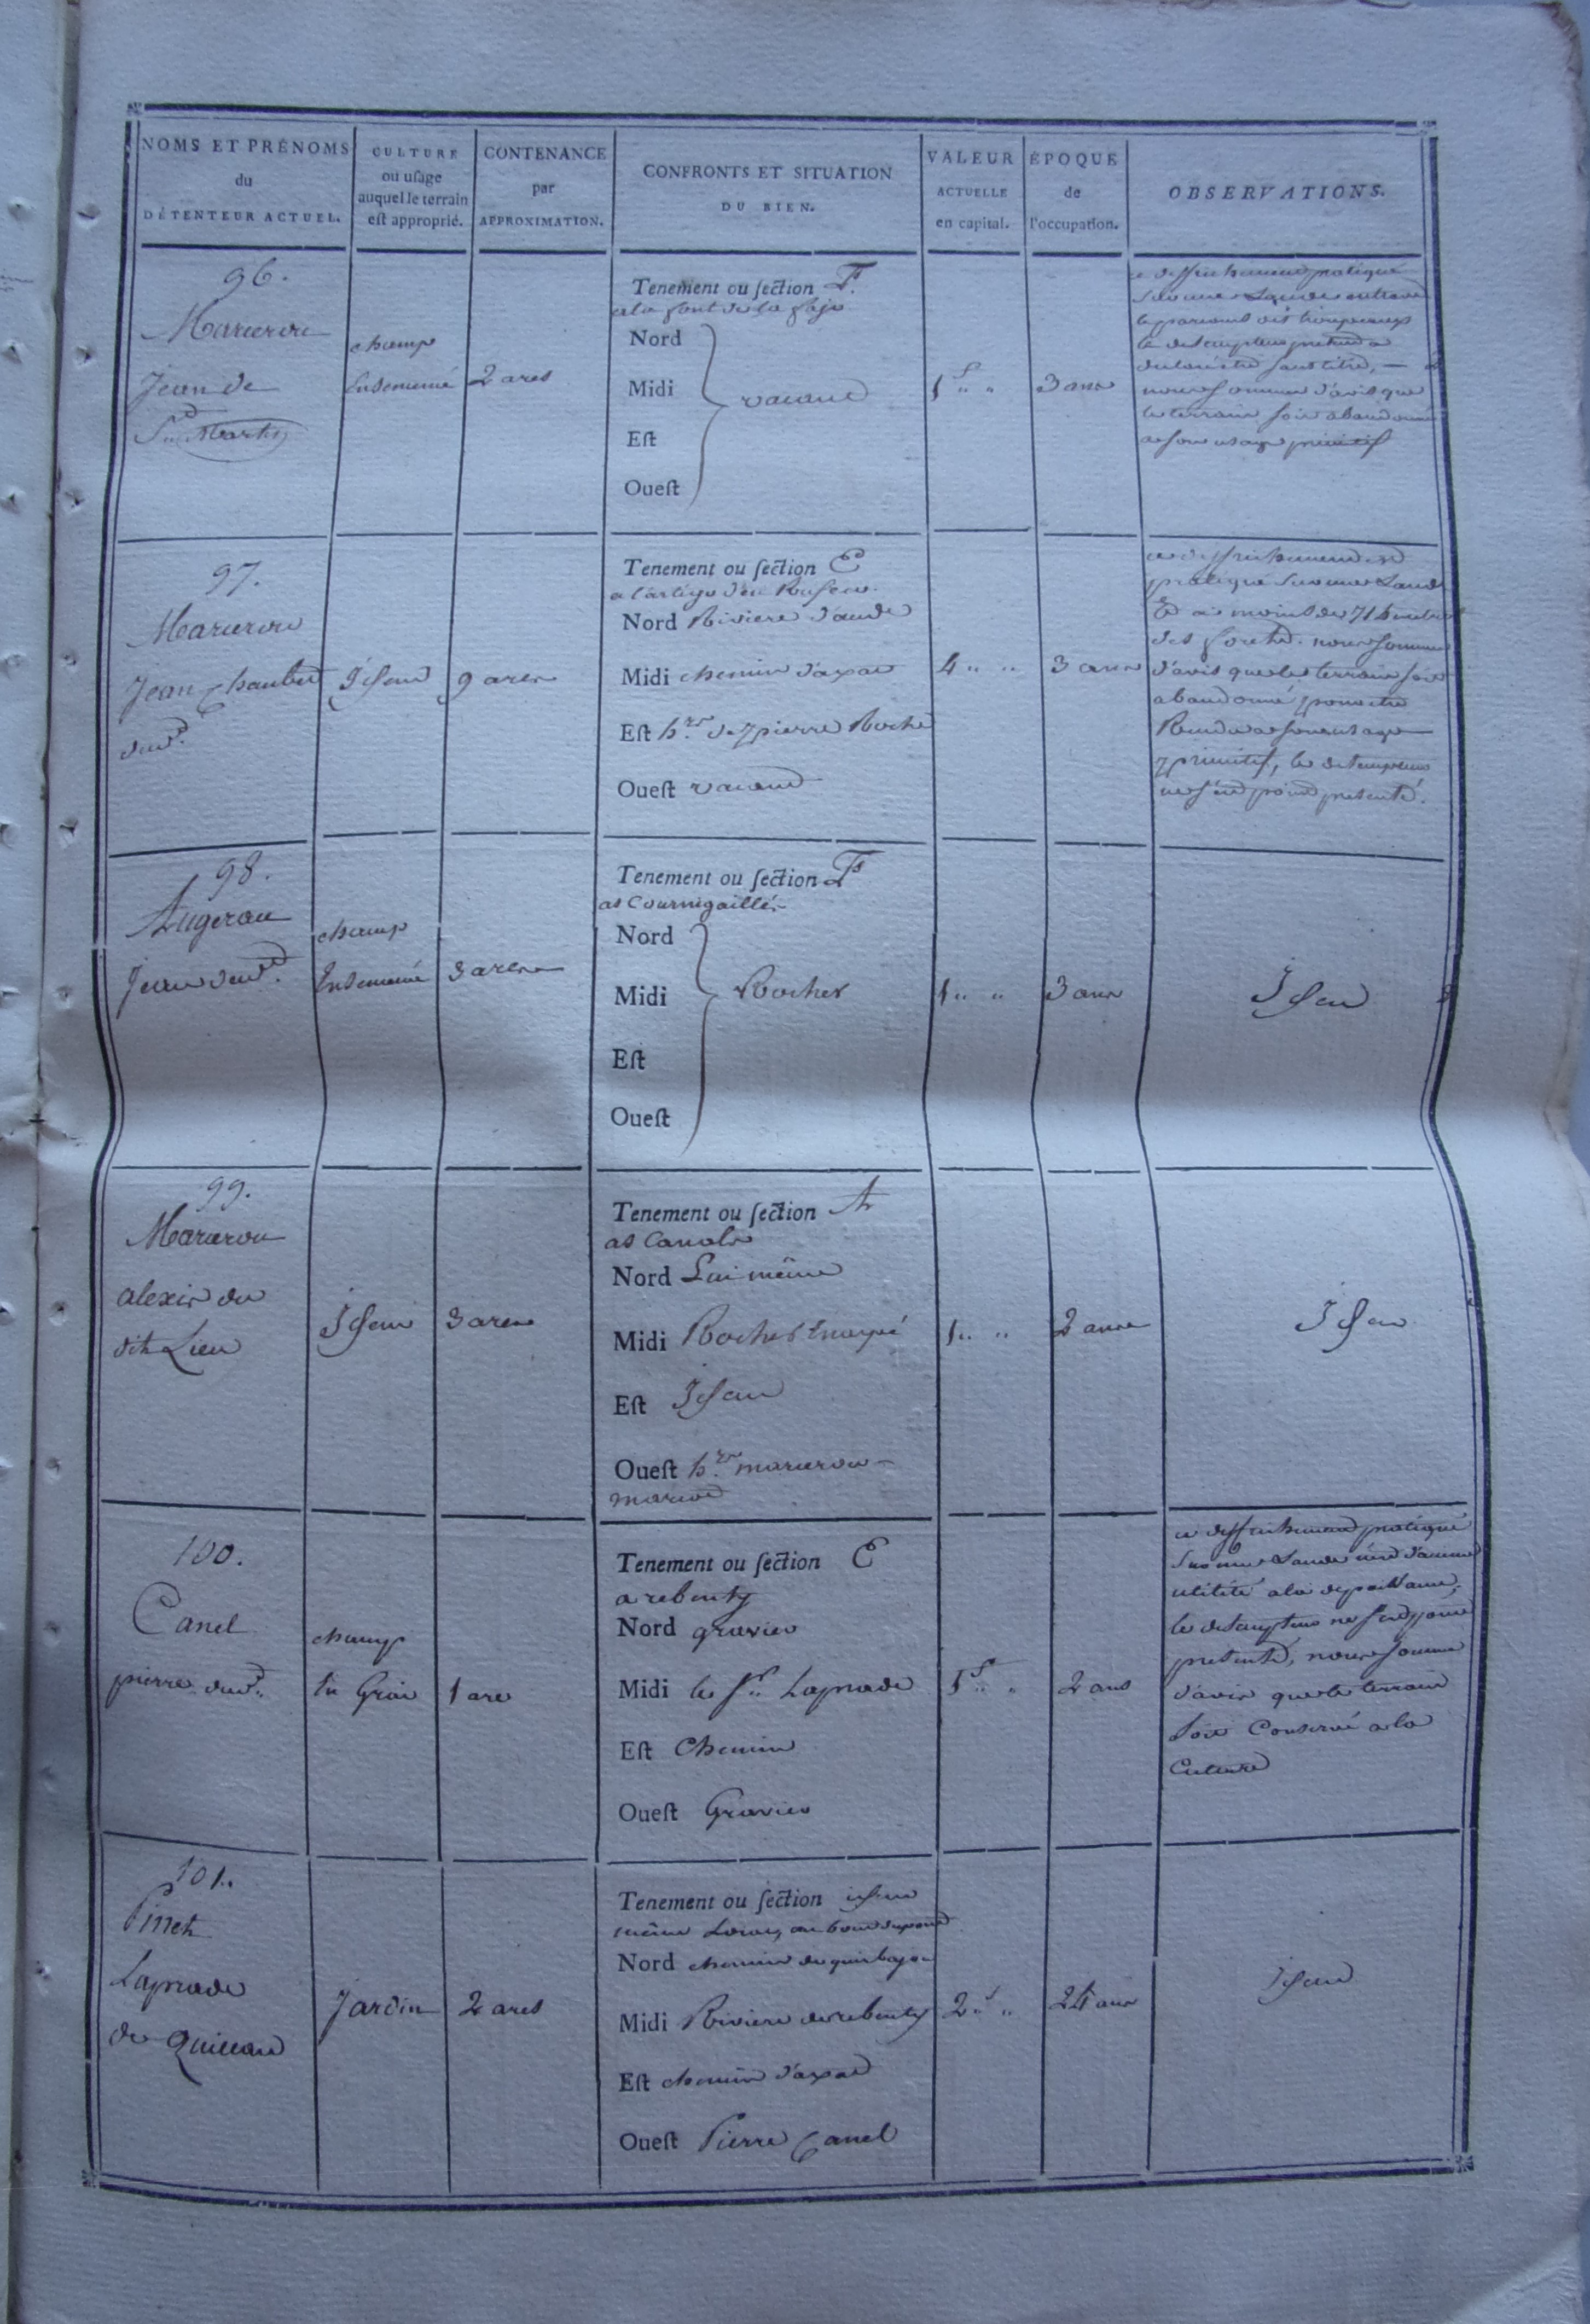 NOMS ET PRÉNOMS
du
DÉTENTEUR ACTUEL.
CULTURE
ou usage
auquel le terrain
est approprié.
CONTENANCE
par
APPROXIMATION.
CONFRONTS ET SITUATION
DU BIEN.
VALEUR
ACTUELLE
en capital.
ÉPOQUE
de
l'occupation.
OBSERVATIONS.
96.
Jean de
St Martin
champ
Ensemencé
2 ares
Tenement ou section F.
a la font de la
Nord
Midi
vacand
Est
Ouest
1 " "
3 ans
ce deffrichement pratiqué
le detempteur
sans titre, —
nous sommes d'avis que
le terrain soit abandonné
a son usage primitif
97.
Jean Chaubet
dud.
Idem
9 ares
Tenement ou section E
Nord Riviere d'aude
Midi chemin d'axat
Est h.rs de pierre Roché
Ouest vacand
4 " "
3 ans
ce deffrichement est
pratiqué sur une Lande
Et a moins de 71
des forets. nous sommes
d'avis que le terrain soit
abandonné pour etre
Rendu a son usage
primitif, le detempteur
ne s'est point presenté.
98.
Augerou
Jean dud.
champ
Ensemencé
3 ares
Tenement ou section F
as Cournigaillé
Nord
Midi
Rocher
Est
Ouest
1 " "
3 ans
Idem
99.
alexis du
dit Lieu
Idem
3 ares
Tenement ou section A
as Canals
Nord Lui même
Midi Rocher
Est Idem
Ouest h.rs
1 " "
2 ans
Idem
100.
Canel
pierre dud.
champ
En Grain
1 are
Tenement ou section E
a rebenty
Nord gravier
Midi le Sr Laprade
Est Chemin
Ouest Gravier
1 " "
2 ans
ce deffrichement pratiqué
sur une Lande n'est d'aucune
utilité a la depaissance,
le detempteur ne s'est point
presenté, nous sommes
d'avis que le terrain
soit Conservé a la
Culture
101.
Pinet
Laprade
de Quillan
Jardin
2 ares
Tenement ou section idem
même Lieu, au bout du pont
Nord chemin de quirbajou
Midi Riviere de rebenty
Est chemin d'axat
Ouest Pierre Canel
2 " "
24 ans
Idem